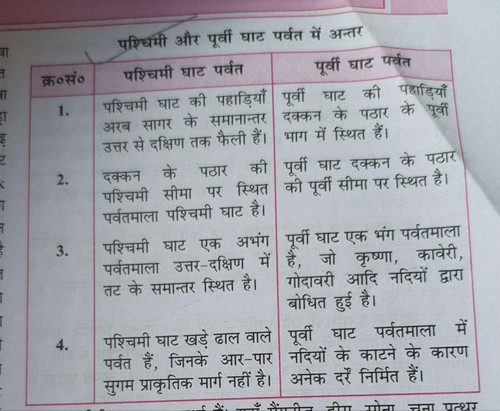 पश्चिमी और पूर्वी घाट पर्वत में अन्तर
क्र०सं०
पश्चिमी घाट पर्वत
पूर्वी घाट पर्वत
1.
पश्चिमी घाट की पहाड़ियाँ
अरब सागर के समानान्तर
उत्तर से दक्षिण तक फैली हैं।
पूर्वी घाट की पहाड़ियाँ
दक्कन के पठार के पूर्वी
भाग में स्थित हैं।
2.
दक्कन के पठार की
पश्चिमी सीमा पर स्थित
पर्वतमाला पश्चिमी घाट है।
पूर्वी घाट दक्कन के पठार
की पूर्वी सीमा पर स्थित है।
3.
पश्चिमी घाट एक अभंग
पर्वतमाला उत्तर-दक्षिण में
तट के समान्तर स्थित है।
पूर्वी घाट एक भंग पर्वतमाला
है, जो कृष्णा, कावेरी,
गोदावरी आदि नदियों द्वारा
बोधित हुई है।
4.
पश्चिमी घाट खड़े ढाल वाले
पर्वत हैं, जिनके आर-पार
सुगम प्राकृतिक मार्ग नहीं है।
पूर्वी घाट पर्वतमाला में
नदियों के काटने के कारण
अनेक दर्रें निर्मित हैं।